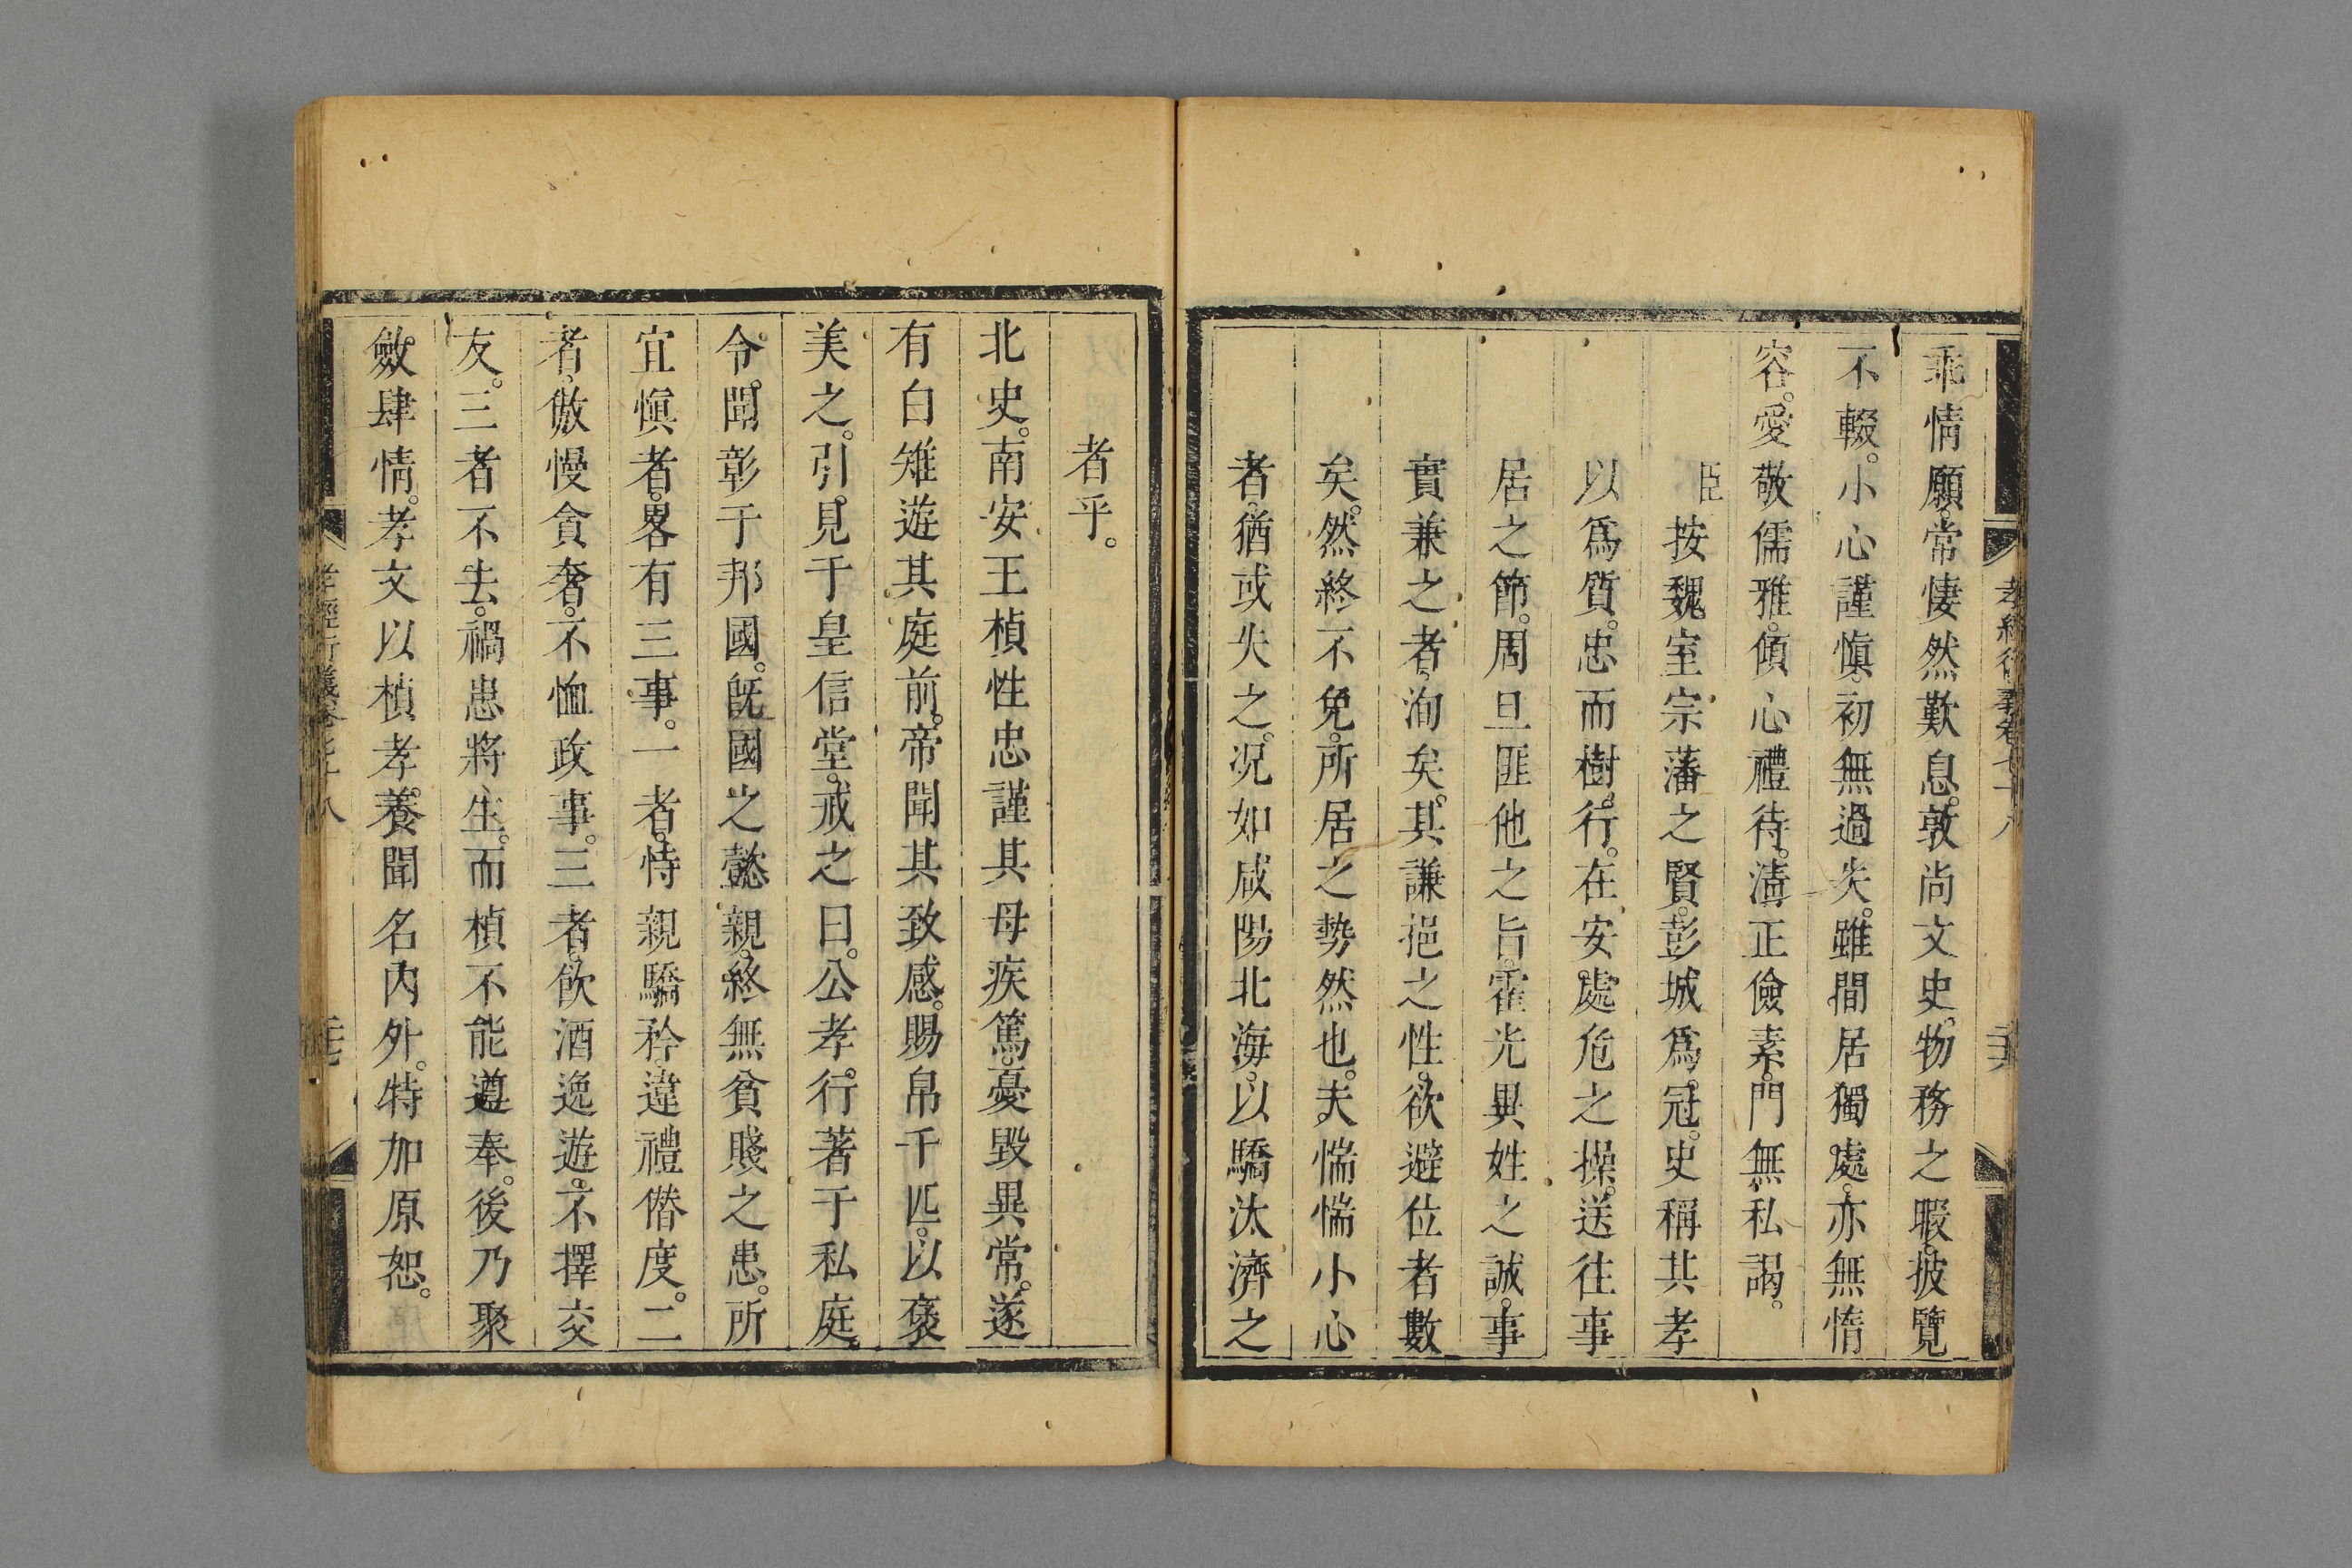 孝經衍義卷七十八
乖情願。常悽然歎息。敦尚文史。物務之暇。披覽
不輟。小心謹慎。初無過失。雖閒居獨處。亦無惰
容。愛敬儒雅。傾心禮待。清正儉素。門無私謁。
臣按魏室宗藩之賢。彭城爲冠。史稱其孝
以爲質。忠而樹行。在安處危之操。送往事
居之節。周旦匪他之旨。霍光異姓之誠。事
實兼之者。洵矣。其謙挹之性。欲避位者數
矣。然終不免。所居之勢然也。夫惴惴小心
者。猶或失之。况如咸陽北海。以驕汰濟之
者乎。
北史。南安王楨性忠謹其母疾篤。憂毀異常。遂
有白雉遊其庭前。帝聞其致感。賜帛千匹。以褒
美之。引見于皇信堂。戒之曰。公孝行著于私庭。
令聞彰于邦國。旣國之懿親。終無貧賤之患。所
宜愼者。畧有三事。一者。恃親驕矜。違禮僭度。二
者。傲慢貪奢。不恤政事。三者。飲酒逸遊。不擇交
友。三者不去。禍患將生。而楨不能遵奉。後乃聚
斂肆情。孝文以楨孝養聞名內外。特加原恕。
孝經衍義卷七十八